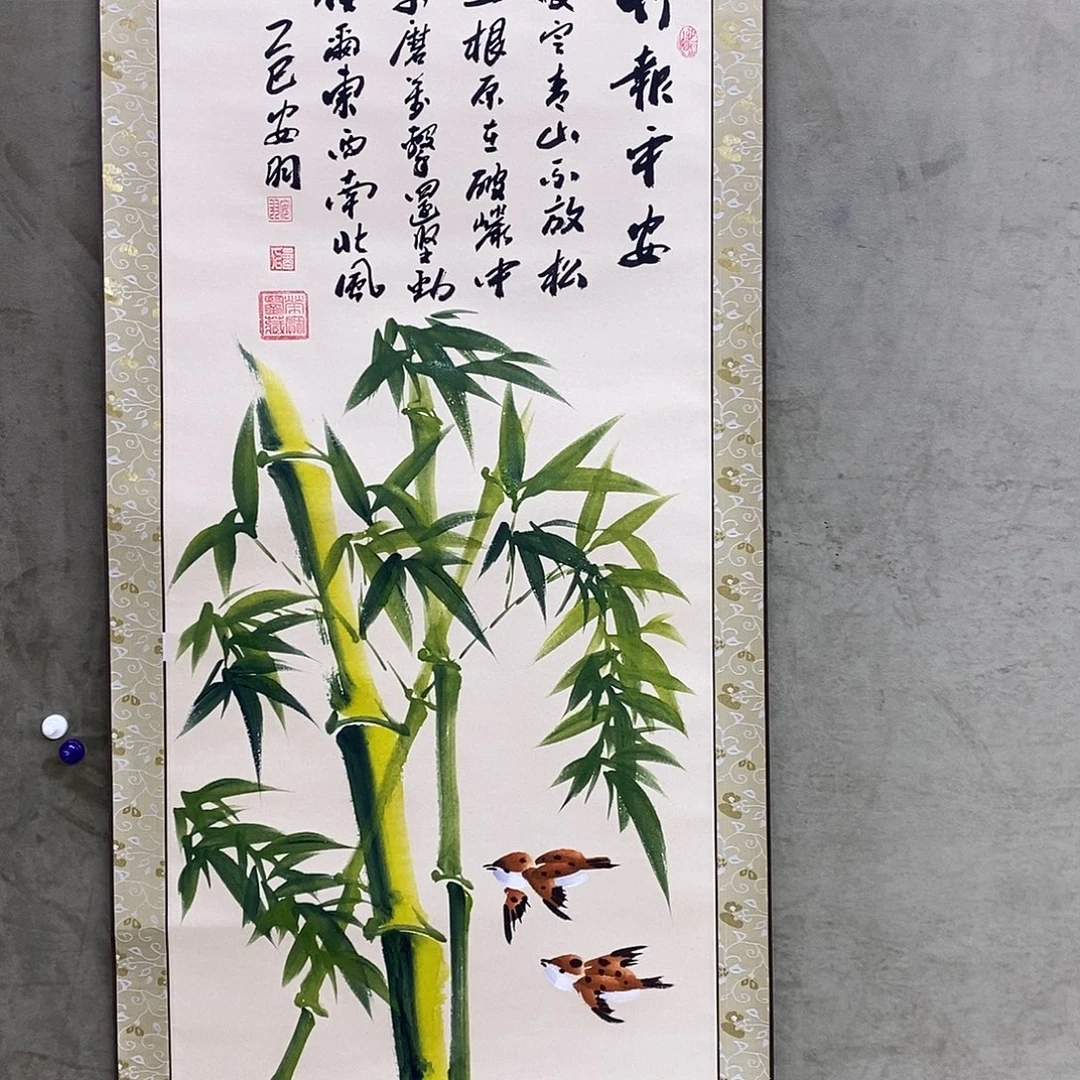 報平安
定青山不放松
根原在破巖中
磨萬擊還堅勁
爾東西南北風
乙巳安羽